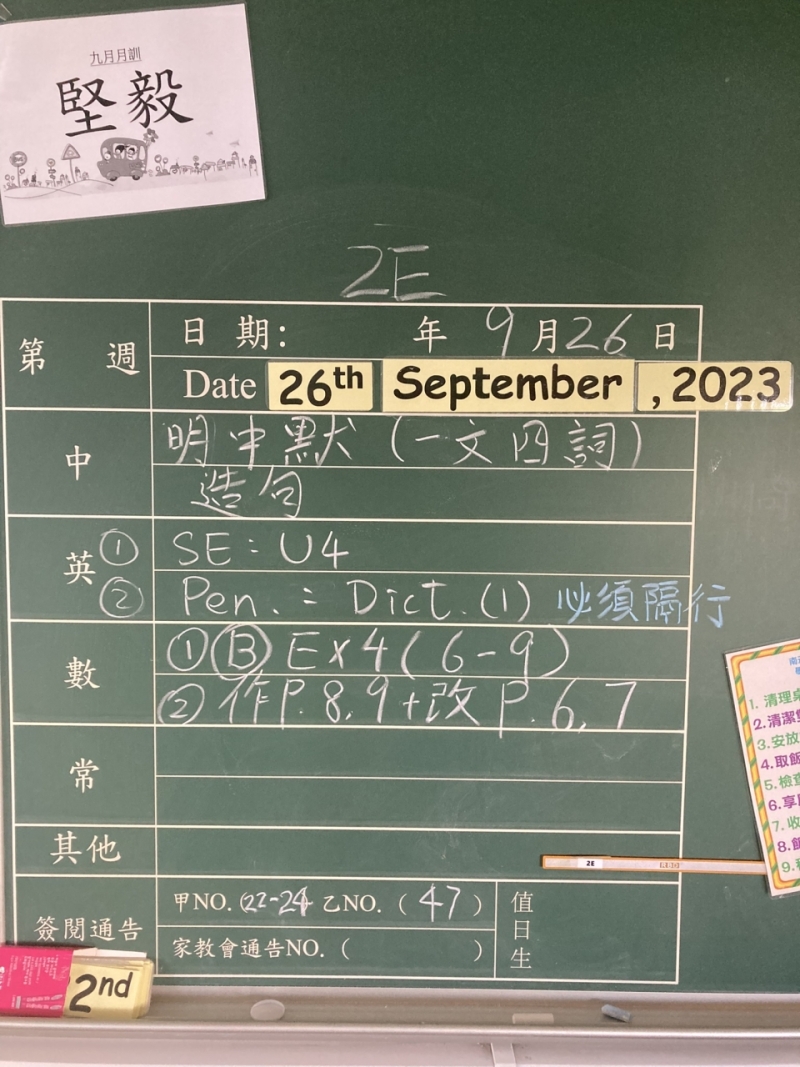 九月月訓
堅毅
2E
第 週
日期: 年 9月26日
Date 26th September , 2023
中
明中默(一文四詞)
造句
英
① SE: U4
② Pen.: Dict.(1) 必須隔行
數
①Ⓑ Ex4(6-9)
②作P.8,9+改P.6,7
常
其他
簽閱通告
甲NO.(22-24 乙NO.(47)
家教會通告NO.( )
值日生
2nd
2E
1. 清理
2.清潔
3.安放
4.取飯
5.檢查
6.享
7.收
8.
9.